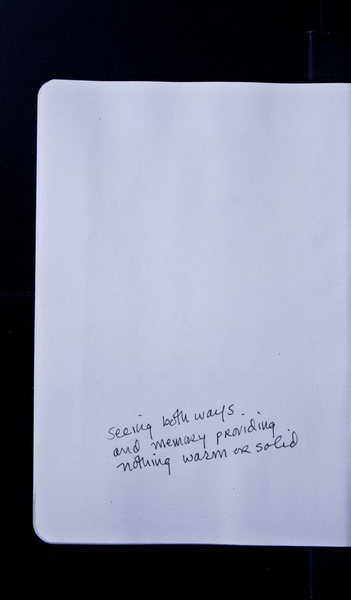 seeing both ways.
and memory providing
nothing warm or solid